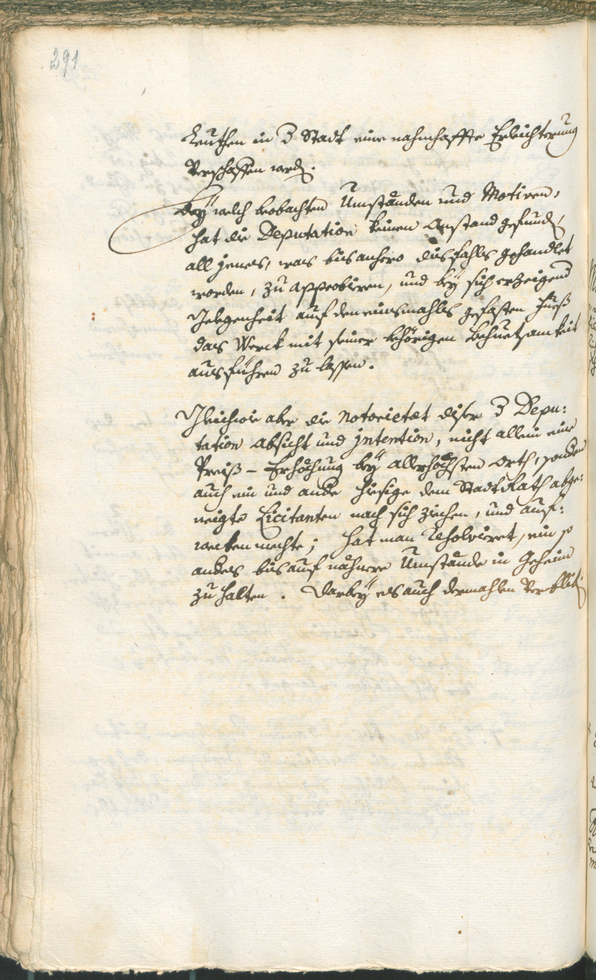 291
Leuthen in d Stadt eine nahmhaffte Erleichterung
verschaffen werd.
Bey welch beobachten Umständen und Motiven,
hat die Deputation keinen Anstand gefund,
all jenes, was bishero disfahls gehandlet
worden, zu approbiren, und bey sich erzeigend
Gelegenheit auf den einsmahls gefasten Fuß
das Werck mit seiner behörigen Behuetsamkeit
ausführen zu lassen.
Gleichwie aber die Notorietæt diser d Depu:
tation Absicht und jntention, nicht allein eine
Preiß-Erhöhung bey allerhöchsten Orth, sonderen
auch ein und ande hiesige dem Stadt Rath abge:
neigte Licitanten nach sich ziehen, und auf:
wecken mechte; hat man Resolvirret, ein so
anders bis auf nähere Umstände in Geheim
zu halten. Darbey es auch dermahlen verblib